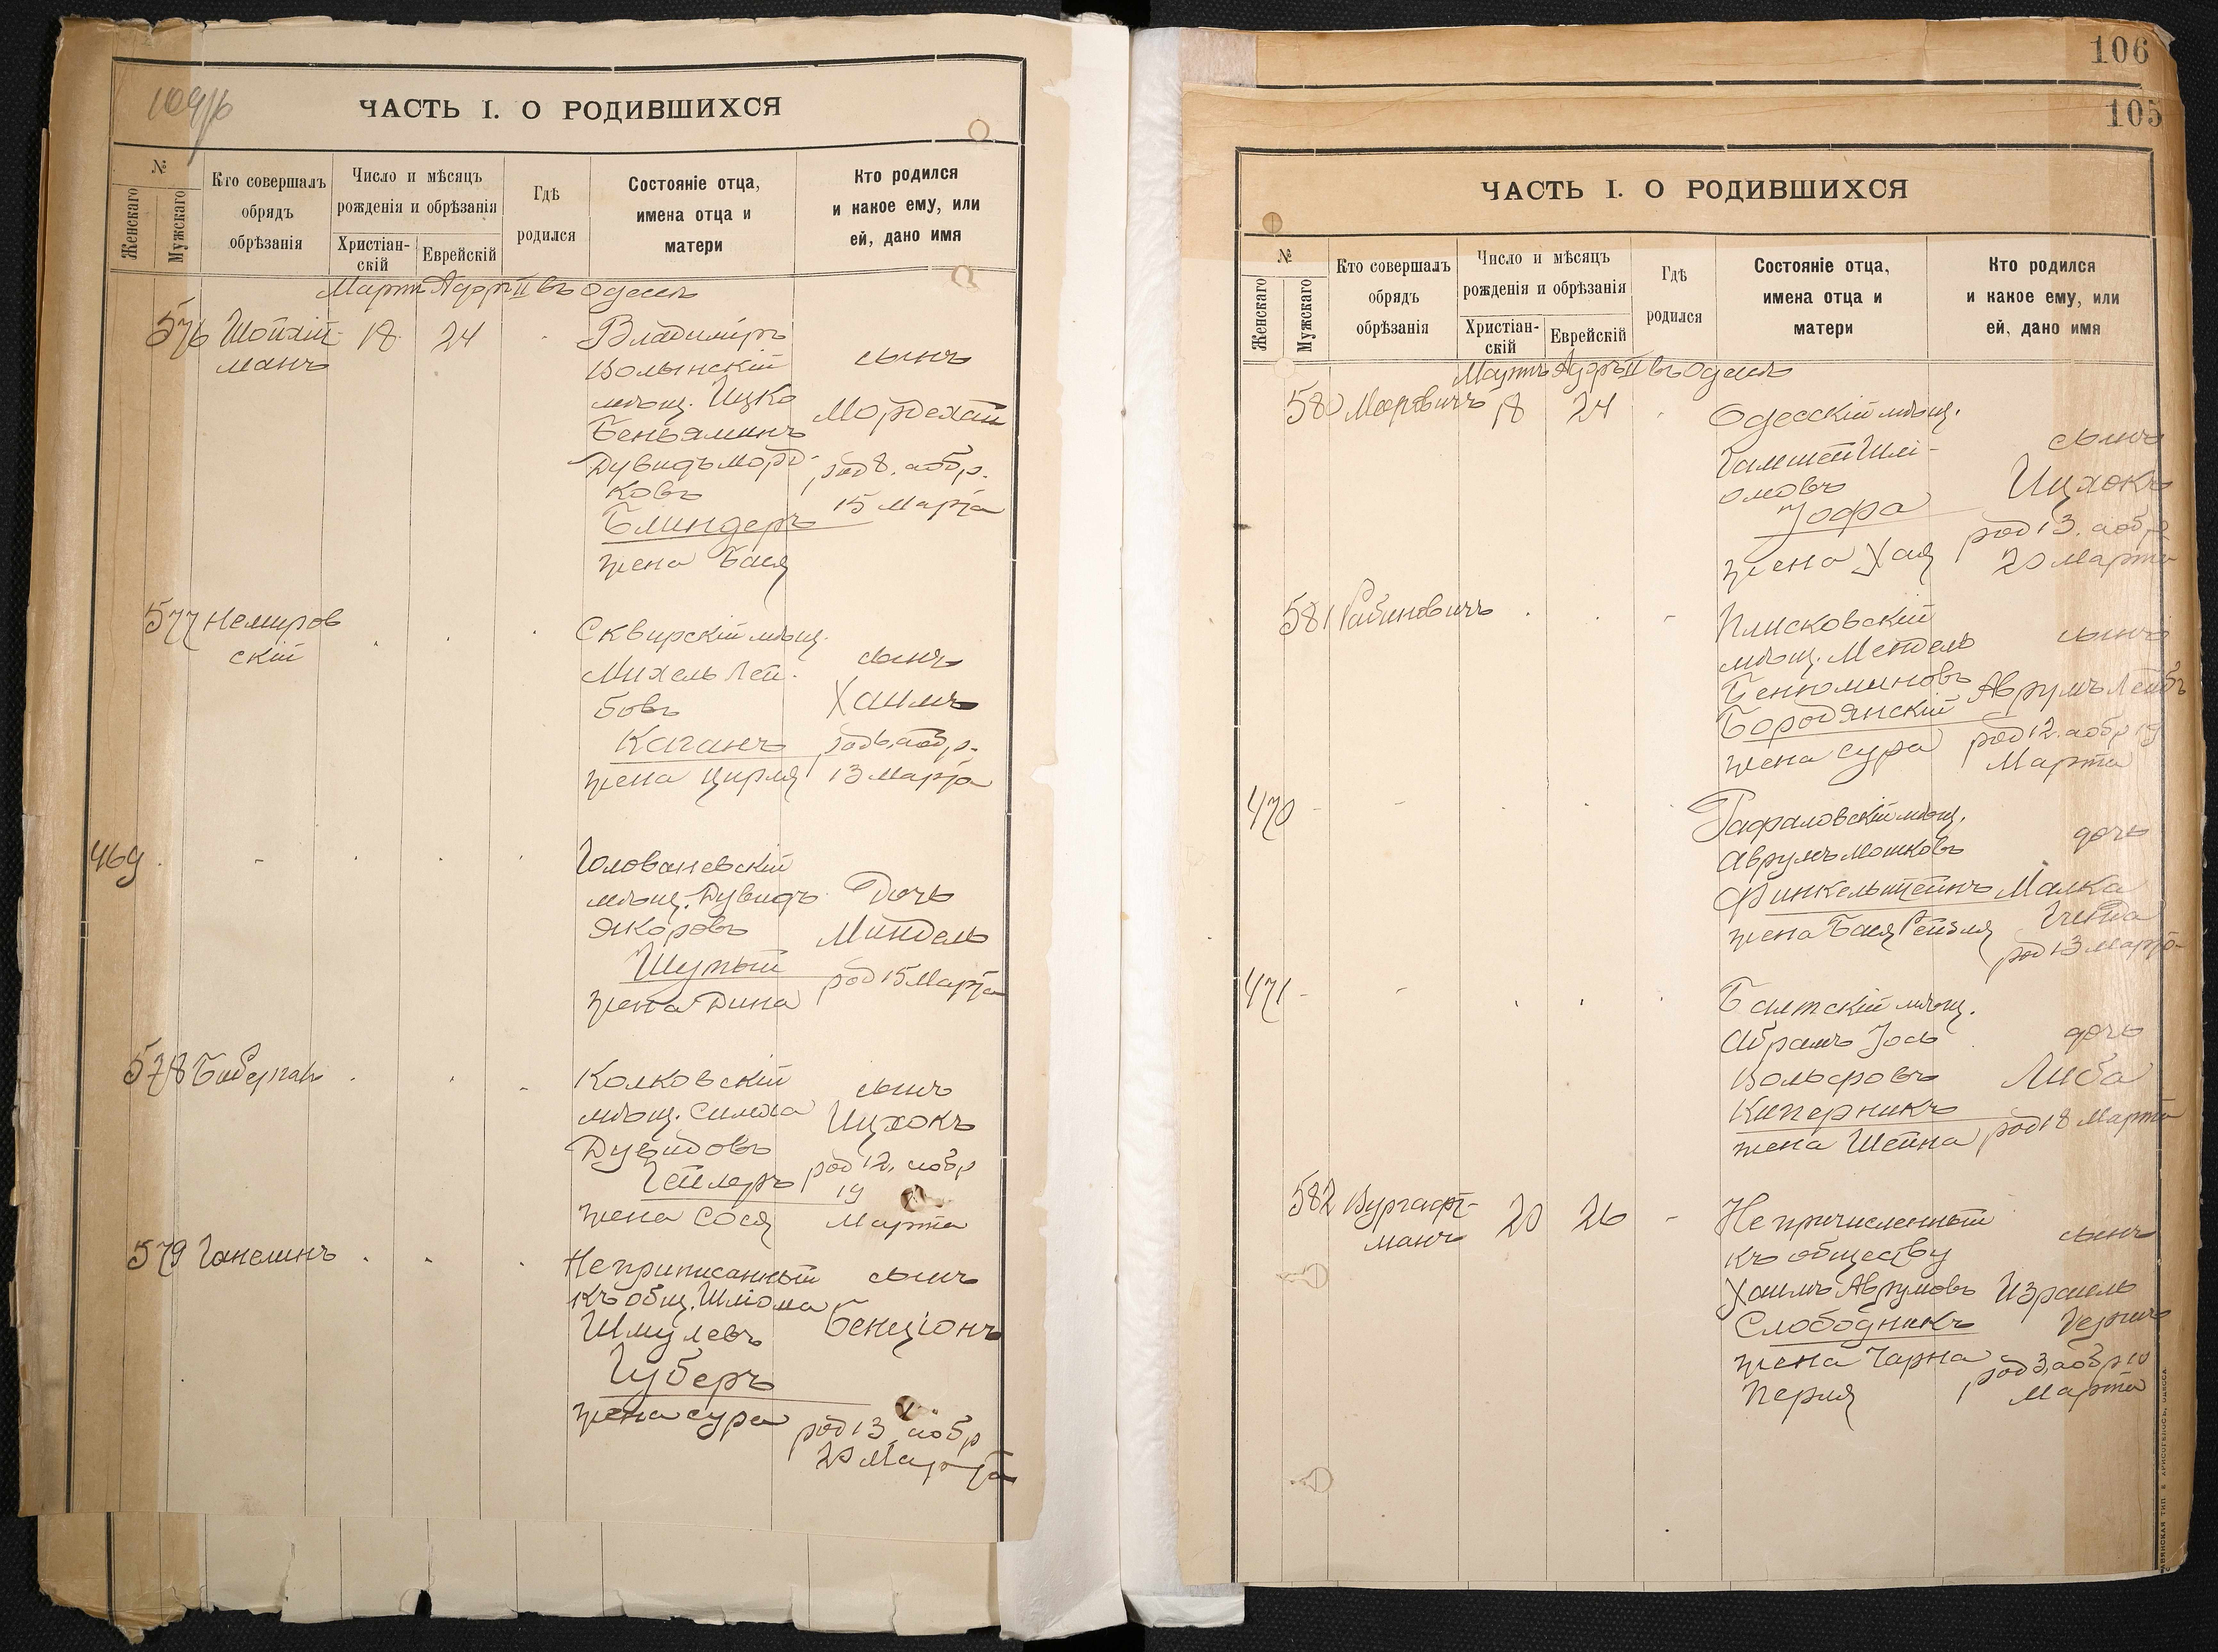 ЧАСТЬ I. О РОДИВШИХСЯ
№
Женскаго
Мужскаго
Кто совершалъ
обрядъ
обрѣзанія
Число и мѣсяцъ
рожденія и обрѣзанія
Христіан-
скій
Еврейскій
Гдѣ
родился
Состояніе отца,
имена отца и
матери
Кто родился
и какое ему, или
ей, дано имя
Мартъ Адаръ II въ Одессѣ
576
18
24
манъ
Владиміръ
Волынскій
мѣщ. Ицко
Беньяминъ
Дувидъ Морд-
ковъ
Блиндеръ
жена Бася
сынъ
Мордехай
род 8. а обр.
15 Марта
577 Немиров
скій
Сквирскій мѣщ.
Михель Лей-
бовъ
Каганъ
жена Цирля
сынъ
Хаимъ
род 6. а обр.
13 Марта
469
Голованевскій
мѣщ. Дувидъ
Янкоровъ
Шумый
жена Дина
Дочь
Миндель
род 15 Марта
578
Колковскій
мѣщ. Симха
Дувидовъ
Гейлеръ
жена Сося
сынъ
Ицхокъ
род 12. а обр
19
Марта
579 Ганелинъ
Неприписанный
къ общ. Шліома
Шмулевъ
Губеръ
жена Сура
сынъ
Бенціонъ
род 13 а обр
20 Марта
106
105
ЧАСТЬ I. О РОДИВШИХСЯ
№
Женскаго
Мужскаго
Кто совершалъ
обрядъ
обрѣзанія
Число и мѣсяцъ
рожденія и обрѣзанія
Христіан-
скій
Еврейскій
Гдѣ
родился
Состояніе отца,
имена отца и
матери
Кто родился
и какое ему, или
ей, дано имя
Мартъ Адаръ II въ Одессѣ
580 Мееровичъ 18 24
Одесскій мѣщ.
Гамшей Шлі-
омовъ
Іофа
жена Хая
сынъ
Ицхокъ
род 13. а обр
20 Марта
581 Рабиновичъ
Плисковскій
мѣщ. Мендель
Бенюминовъ
Бородянскій
жена Сура
сынъ
Аврумъ Лейбъ
род 12. а обр 19
Марта
470
Рафаловскій мѣщ.
Аврумъ Мошковъ
Финкельштейнъ
жена Бася Рейзля
дочь
Малка
род 13 Марта
471
Балтскій мѣщ.
Абрамъ Іось
Вольфовъ
Киперникъ
жена Шейна
дочь
Либа
род 18 Марта
582 Вургафт-
манъ
20 26
Непричисленный
къ обществу
Хаимъ Аврумовъ
Слободникъ
жена Чарна
Перля
сынъ
Израиль
Гершъ
род 3, а обр 10
Марта